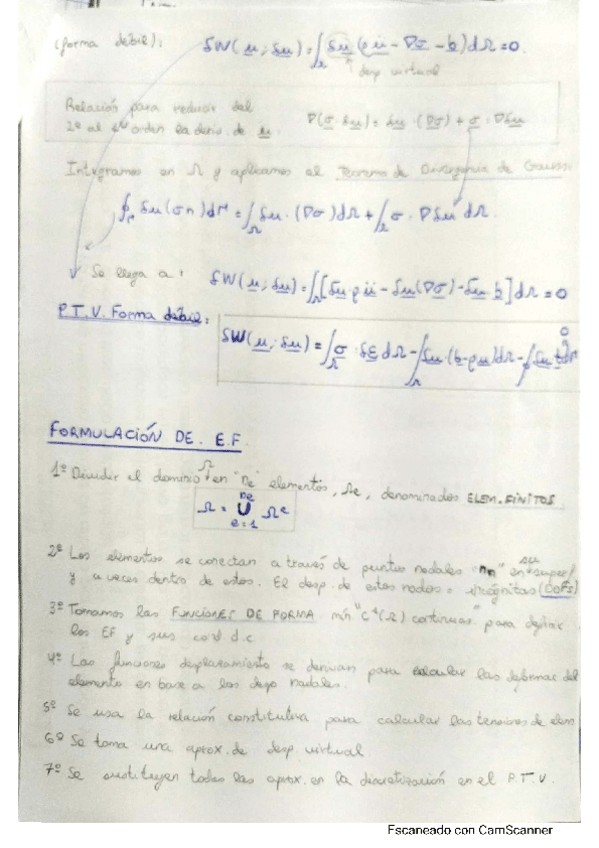 (forma débil):
δW(u; δu) = ∫_Ω δu (ρü - ∇σ - b) dΩ = 0.
desp virtual
Relación para reducir del
2º al 1er orden la deriv. de u. ∇(σ·δu) = δu·(∇σ) + σ·∇δu
Integramos en Ω y aplicamos el Teorema de Divergencia de Gauss:
∮_Γ δu(σn)dΓ = ∫_Ω δu·(∇σ)dΩ + ∫_Ω σ·∇δu dΩ.
Se llega a: δW(u; δu) = ∫_Ω [δu·ρü - δu(∇σ) - δu·b] dΩ = 0
P.T.V. Forma débil:
δW(u; δu) = ∫_Ω σ·δε dΩ - ∫_Ω δu·(b - ρü)dΩ - ∮ δu t dΓ
0
FORMULACIÓN DE E.F.
1º Dividir el dominio Ω en "ne" elementos, Ωe, denominados ELEM. FINITOS
Ω = ∪_{e=1}^{ne} Ωe
2º Los elementos se conectan a través de puntos nodales "nn" en su super/
y a veces dentro de estos. El desp. de estos nodos = incógnitas (DOFs)
3º Tomamos las FUNCIONES DE FORMA mín "C⁰(Ω) continuas" para definir
los EF y sus cond d.c
4º Las funciones desplazamiento se derivan para calcular las deformac del
elemento en base a los desp nodales.
5º Se usa la relación constitutiva para calcular las tensiones de elem
6º Se toma una aprox. de desp. virtual
7º Se sustituyen todas las aprox. en la discretización en el P.T.V.
Escaneado con CamScanner